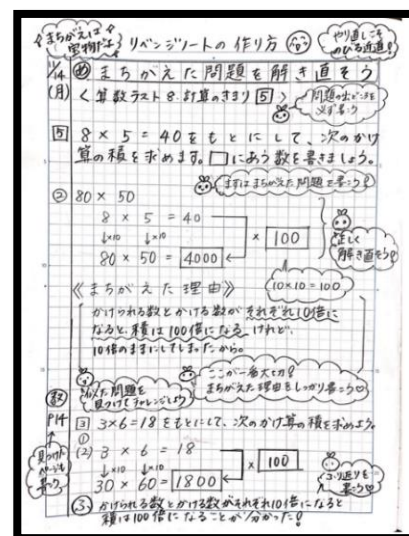 まちがえは
宝物だよ
リベンジノートの作り方
やり直しこそ
のびる近道!
11/14
(月)
め まちがえた問題を解き直そう
<算数ラスト8.計算のきまり 5>
問題の出どころを
必ず書こう
5 8×5=40をもとにして、次のかけ
算の積を求めます。□にあう数を書きましょう。
まずはまちがえた問題を書こう!
② 80×50
8 × 5 = 40
↓×10 ↓×10
× 100
80 × 50 = 4000
正しく
解き直そう!
10×10=100
《まちがえた理由》
かけられる数とかける数がそれぞれ10倍に
なると、積は100倍になる けれど、
10倍のままにしてしまったから。
ここが一番大切!
まちがえた理由をしっかり書こう
似た問題を
見つけてチャレンジしよう
教
P14
見つけた
ページも
書こう
3 3×6=18をもとにして、次のかけ算の積を求めよう。
①
(2) 3 × 6 = 18
↓×10 ↓×10
× 100
30 × 60 = 1800
ふり返りを
書こう
ふ かけられる数とかける数がそれぞれ10倍になると
積は100倍になることが分かった!